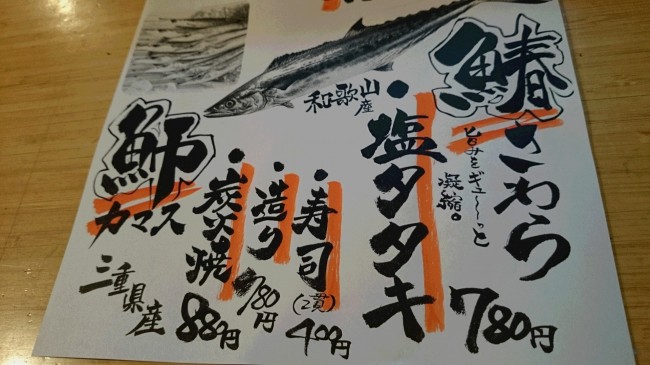 鰆〈さわら
旨みをギュ〜〜っと
凝縮。
780円
和歌山産
・塩タタキ
・寿司(2貫)400円
・造り780円
・炭火焼880円
魳
カマス
三重県産